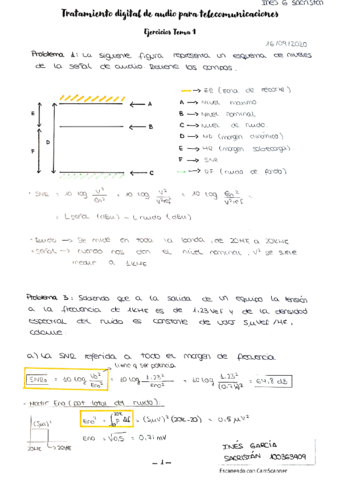 INÉS G SACRISTÁN
Tratamiento digital de audio para telecomunicaciones
Ejercicios Tema 1
16/09/2020
Problema 1: La siguiente figura representa un esquema de niveles
de la señal de audio. Rellene los campos.
→ ER (zona de recorte)
A → Nivel máximo
B → Nivel nominal
C → Nivel de ruido
D → MD (margen dinámico)
E → MS (margen sobrecarga)
F → SNR
→ (ruido de fondo)
A
B
C
E
F
D
· SNR = 10 log = 10 log = 10 log
= Lseñal (dBu) - Lruido (dBu)
· Ruido → Se mide en toda la banda, de 20Hz a 20kHz
· Señal → cuando nos den el nivel nominal, V² se suele
medir a 1kHz
Problema 3: Sabiendo que a la salida de un equipo la tensión
a la frecuencia de 1kHz es de 1.23 Vef y de la densidad
espectral del ruido es constante de valor 5μV/√Hz,
calcule:
a) La SNR referida a todo el margen de frecuencia.
tiene q ser potencia
= 10 log = 10 log 1.23² = 10 log 1.23² = 64.8 dB
· Hallar Eno (pot total del ruido):
(5μ)²
20Hz → 20kHz
Eno² = (5μV)² (20k-20) = 0.5 μV²
Eno = √0.5 = 0.71 mV
INÉS GARCÍA
SACRISTÁN 100363409
- 1 -
Escaneado con CamScanner